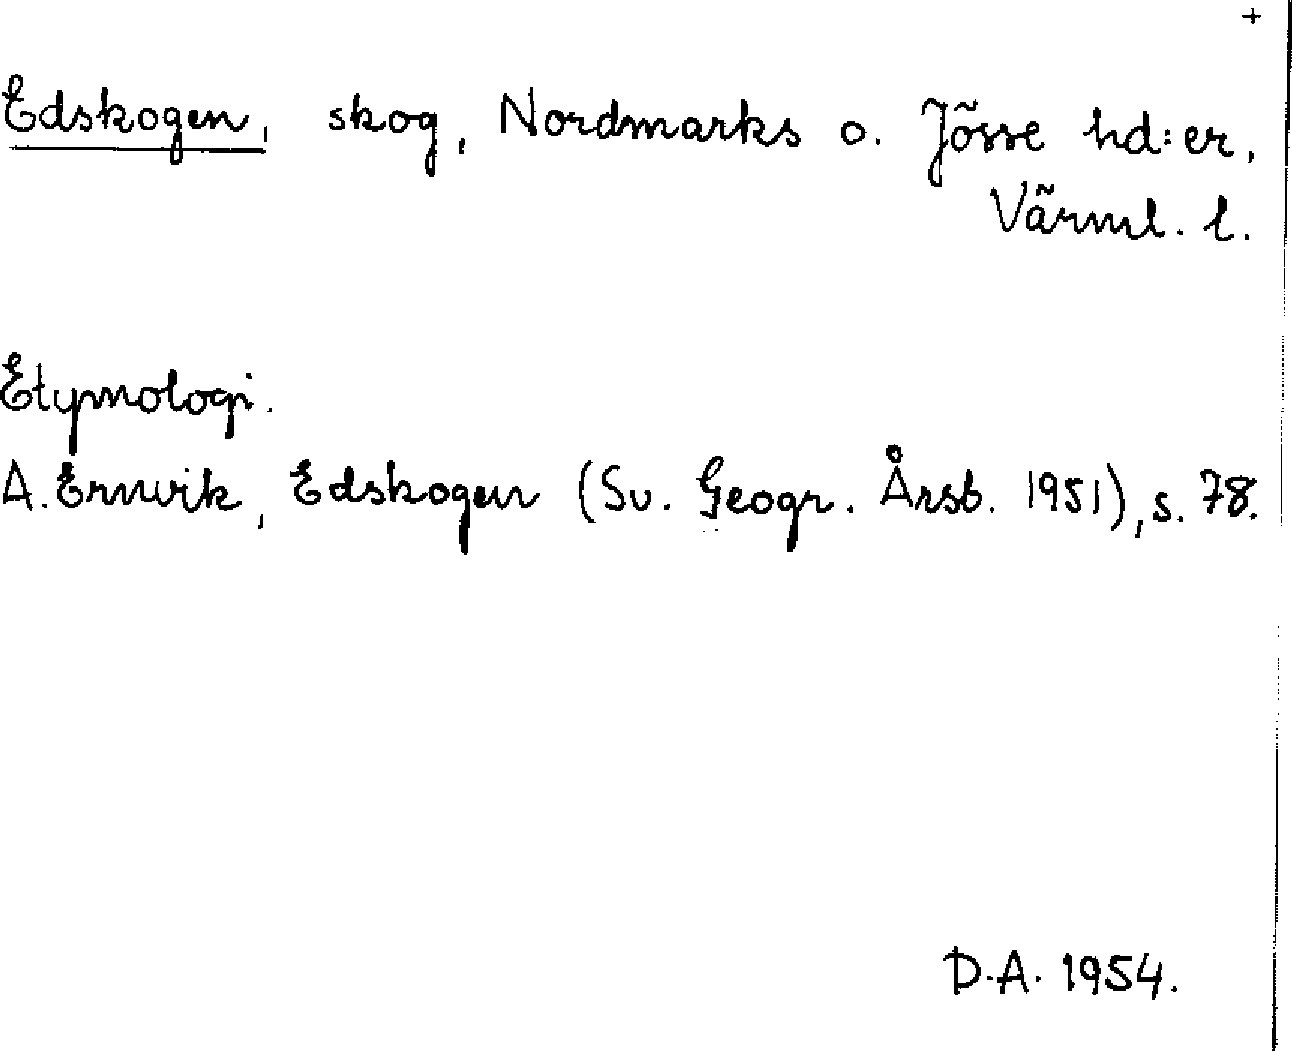 +
Edskogen, skog, Nordmarks o. Jösse hd:er,
Värml. l.
Etymologi.
A. Ernvik, Edskogen (Sv. Geogr. Årsb. 1951), s. 78.
D.A. 1954.